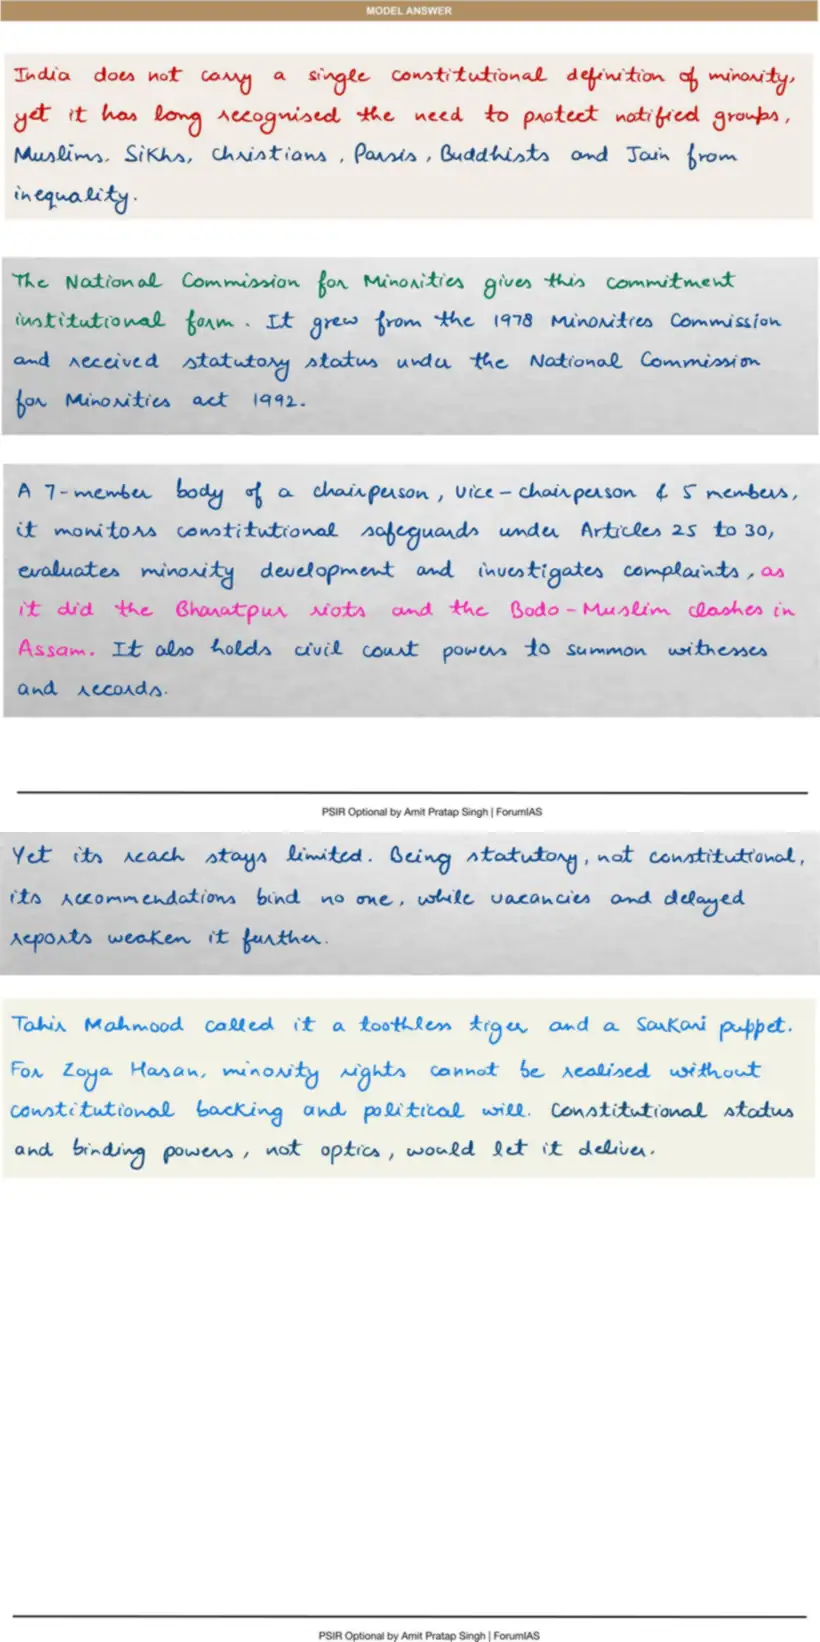 MODEL ANSWER
India does not carry a single constitutional definition of minority,
yet it has long recognised the need to protect notified groups,
Muslims, Sikhs, Christians, Parsis, Buddhists and Jain from
inequality.
The National Commission for Minorities gives this commitment
institutional form. It grew from the 1978 Minorities Commission
and received statutory status under the National Commission
for Minorities act 1992.
A 7-member body of a chairperson, vice-chairperson & 5 members,
it monitors constitutional safeguards under Articles 25 to 30,
evaluates minority development and investigates complaints, as
it did the Bharatpur riots and the Bodo-Muslim clashes in
Assam. It also holds civil court powers to summon witnesses
and records.
PSIR Optional by Amit Pratap Singh | ForumIAS
Yet its reach stays limited. Being statutory, not constitutional,
its recommendations bind no one, while vacancies and delayed
reports weaken it further.
Tahir Mahmood called it a toothless tiger and a Sarkari puppet.
For Zoya Hasan, minority rights cannot be realised without
constitutional backing and political will. Constitutional status
and binding powers, not optics, would let it deliver.
PSIR Optional by Amit Pratap Singh | ForumIAS